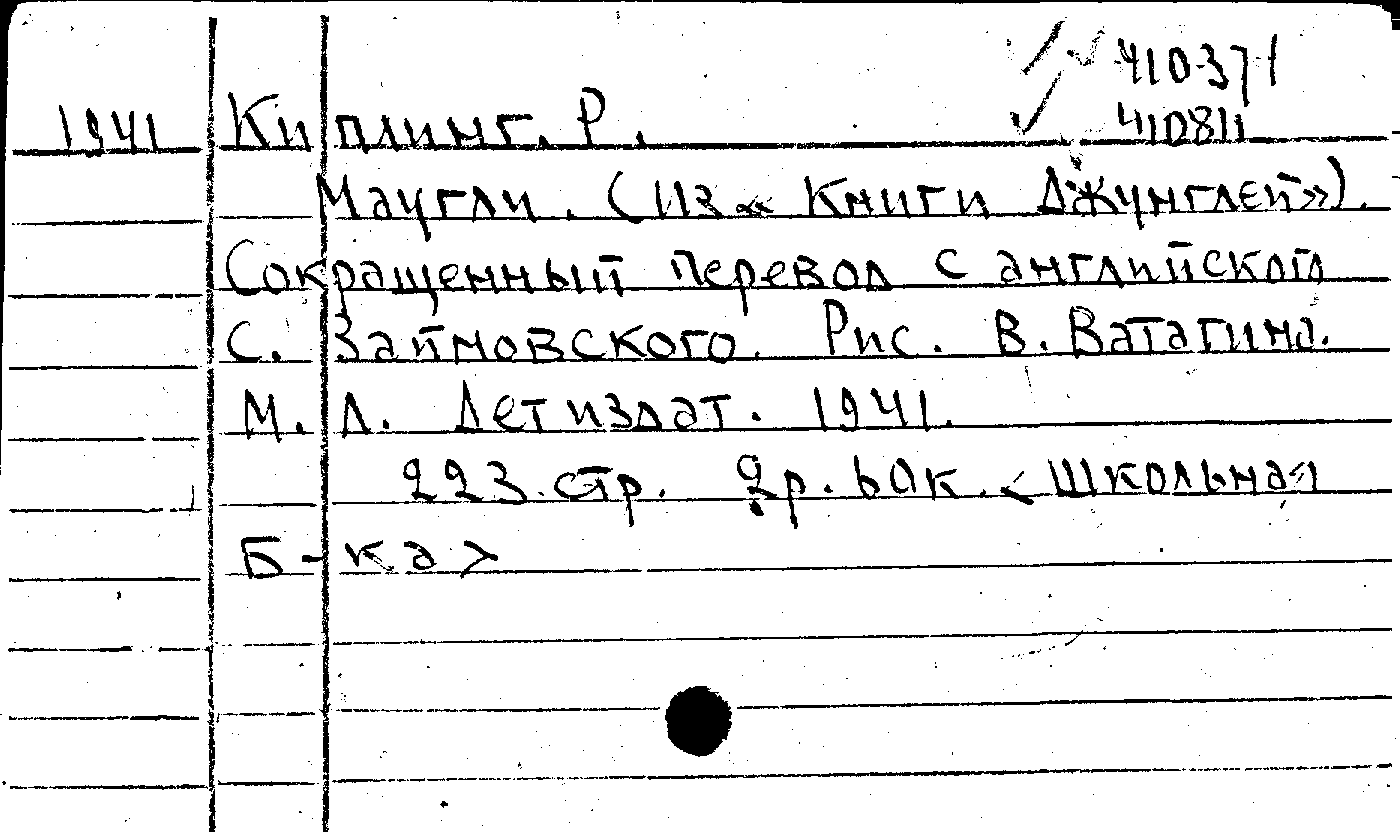 410371
1941 Киплинг. Р. 410811
Маугли. (Из «Книги Джунглей»).
Сокращенный перевод с английского
С. Займовского. Рис. В. Ватагина.
М. Л. Детиздат. 1941.
223 стр. 2р. 60к. <Школьная
Б-ка>